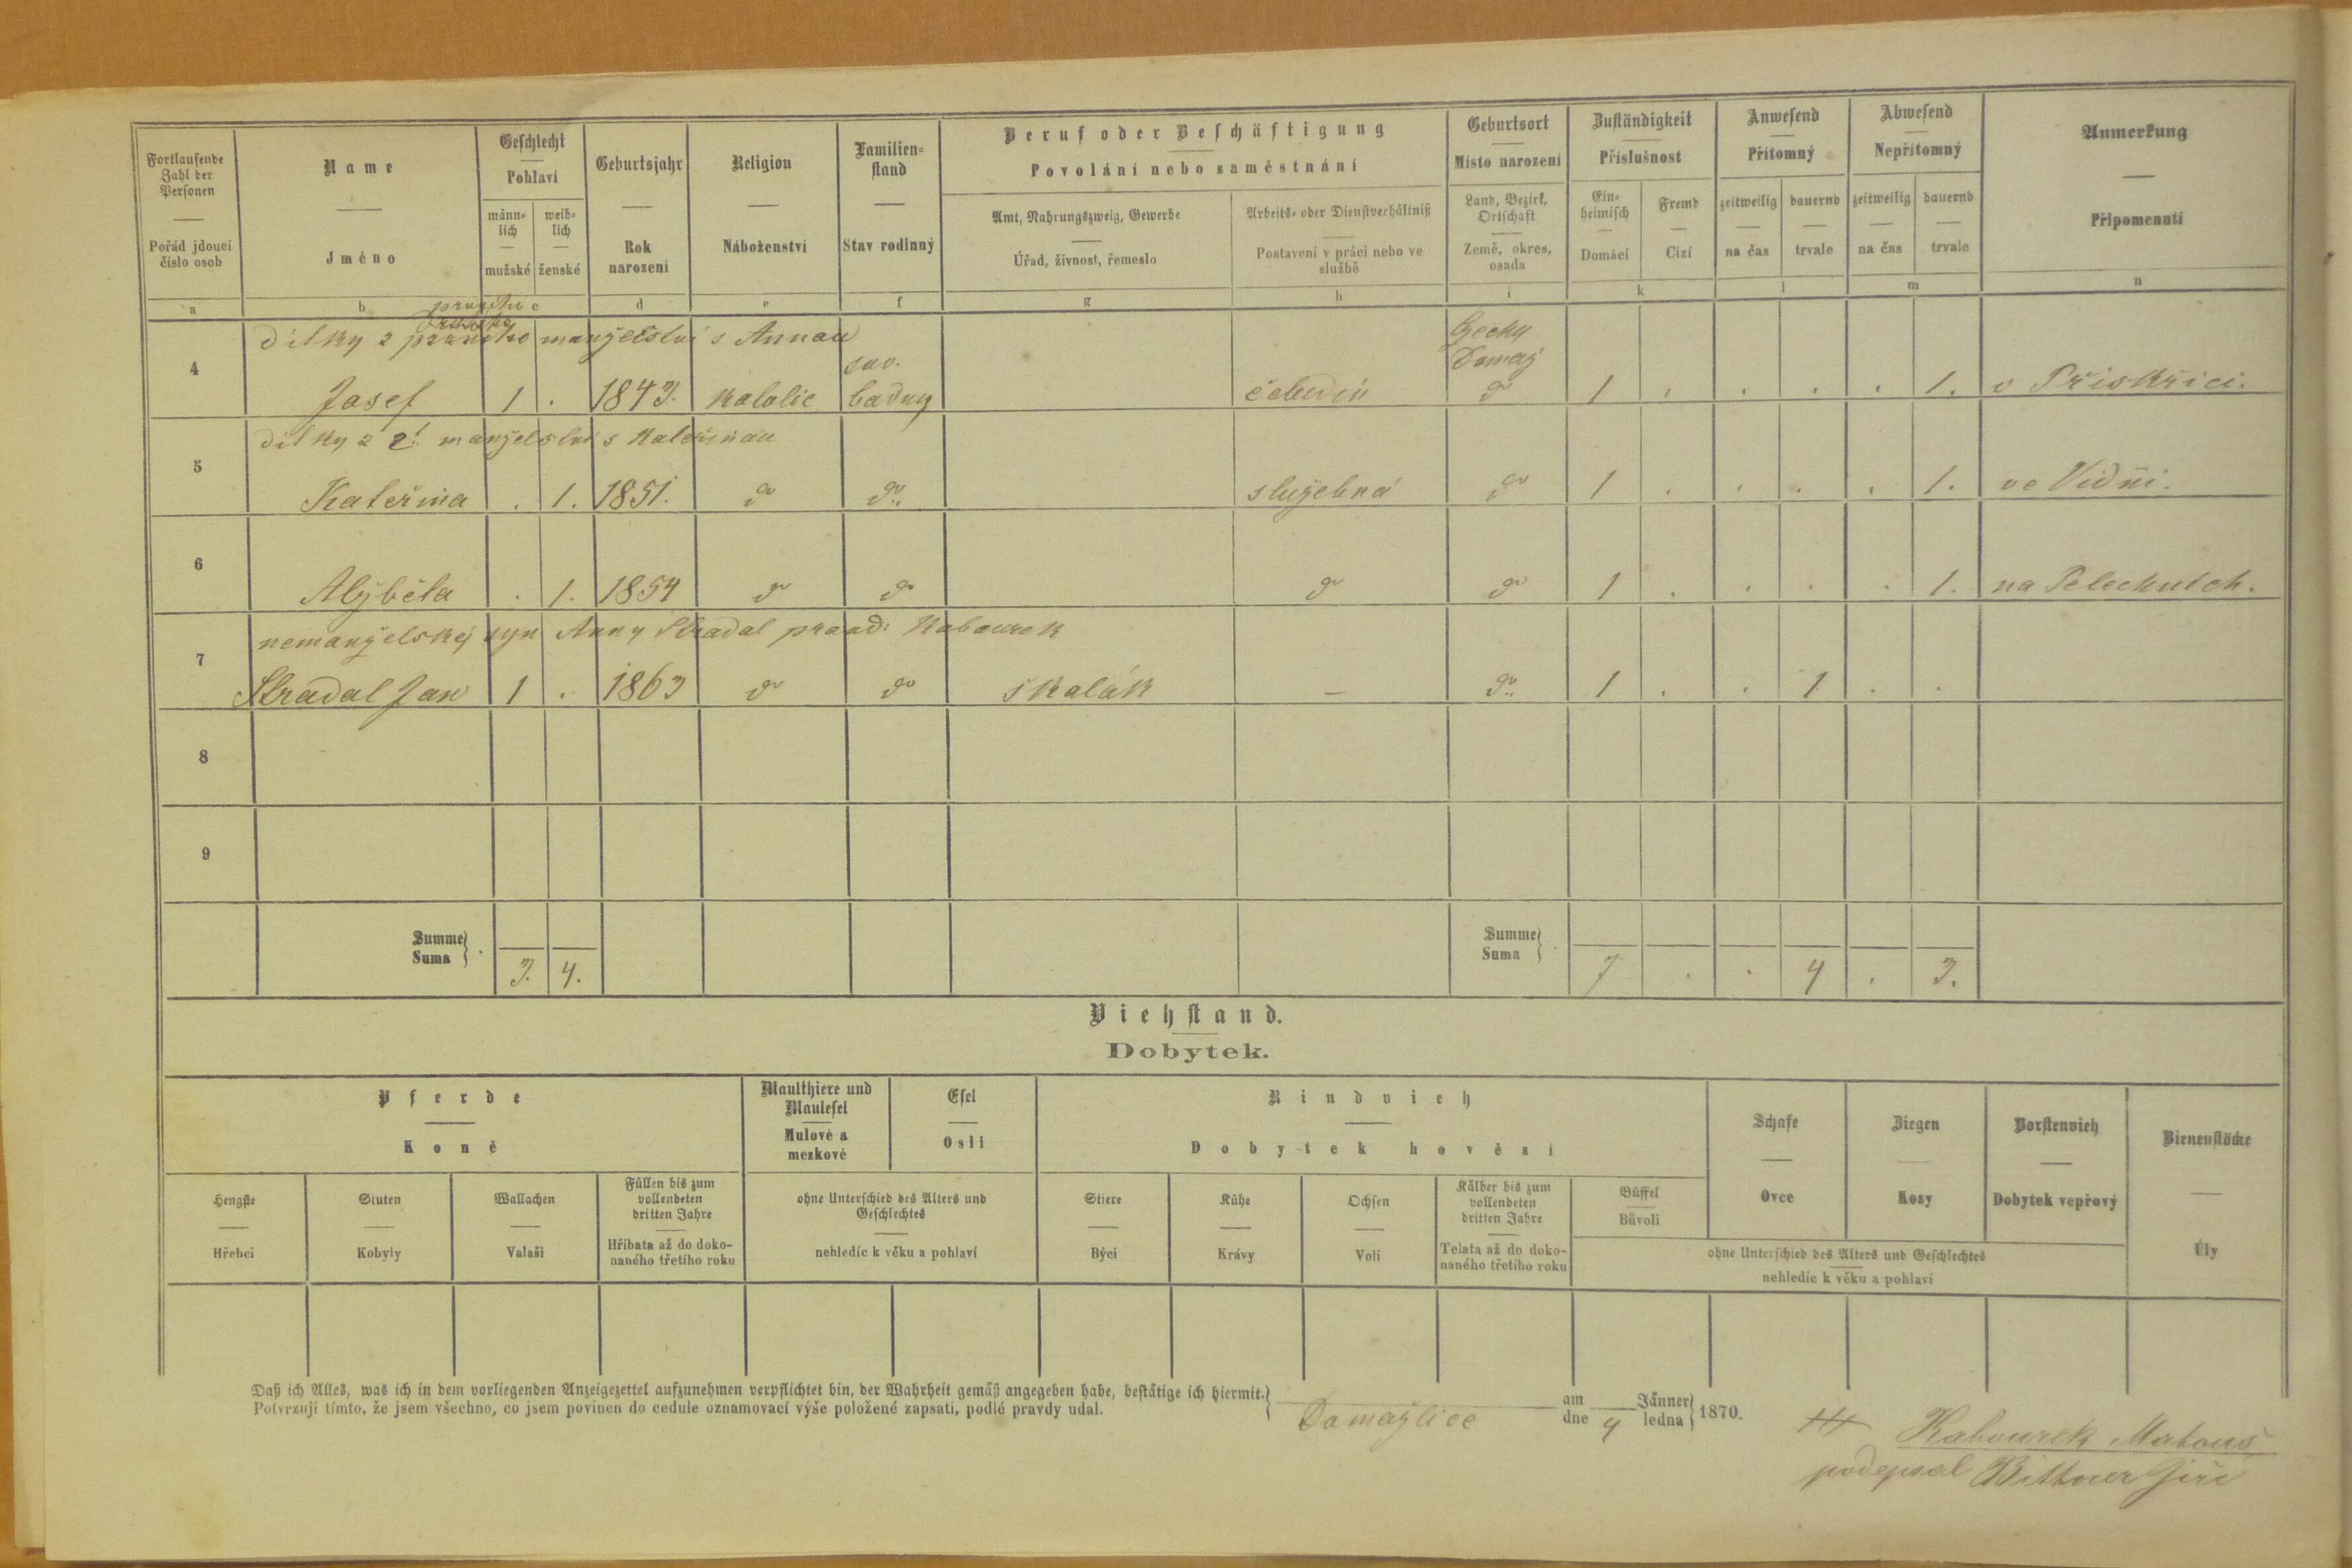 Fortlaufende Zahl der Personen
Pořád jdoucí číslo osob
Name
Jméno
Geschlecht
Pohlaví
männlich
mužské
weiblich
ženské
Geburtsjahr
Rok narození
Religion
Náboženství
Familienstand
Stav rodinný
Beruf oder Beschäftigung
Povolání nebo zaměstnání
Amt, Nahrungszweig, Gewerbe
Úřad, živnost, řemeslo
Arbeits- oder Dienstverhältniß
Postavení v práci nebo ve službě
Geburtsort
Místo narození
Land, Bezirk, Ortschaft
Země, okres, osada
Zuständigkeit
Příslušnost
Einheimisch
Domácí
Fremd
Cizí
Anwesend
Přítomný
zeitweilig
na čas
dauernd
trvale
Abwesend
Nepřítomný
zeitweilig
na čas
dauernd
trvale
Anmerkung
Připomenutí
a b c d e f g h i k l m n
dítky z manželství s Annau
4 Josef 1 . 1843. katolic čeledín Čechy Domaž 1 . . . . 1. v
dítky z 2. manželství s Kateřinau
5 Kateřina . 1. 1851. do do služebná do 1 . . . . 1. ve Vídni.
6 Alžběta . 1. 1854 do do do do 1 . . . . 1. na
nemanželskej syn Anny Stradal Kabourek
7 Stradal Jan 1 . 1863 do do školák – do 1 . . 1 . .
8
9
Summe
Suma
3. 4.
Summe
Suma
7 . . 4 . 3.
Viehstand.
Dobytek.
Pferde
Koně
Hengste
Hřebci
Stuten
Kobyly
Wallachen
Valaši
Füllen bis zum vollendeten dritten Jahre
Hříbata až do dokonaného třetího roku
Maulthiere und Maulesel
Mulové a mezkové
Esel
Osli
ohne Unterschied des Alters und Geschlechtes
nehledíc k věku a pohlaví
Rindvieh
Dobytek hovězí
Stiere
Býci
Kühe
Krávy
Ochsen
Voli
Kälber bis zum vollendeten dritten Jahre
Telata až do dokonaného třetího roku
Büffel
Bůvoli
Schafe
Ovce
Ziegen
Kozy
Borstenvieh
Dobytek vepřový
ohne Unterschied des Alters und Geschlechtes
nehledíc k věku a pohlaví
Bienenstöcke
Úly
Daß ich Alles, was ich in dem vorliegenden Anzeigezettel aufzunehmen verpflichtet bin, der Wahrheit gemäß angegeben habe, bestätige ich hiermit.
Potvrzuji tímto, že jsem všechno, co jsem povinen do cedule oznamovací výše položené zapsati, podlé pravdy udal.
Domažlice
am
dne 4 Jänner
ledna 1870.
+++ Kabourek Matouš
podepsal Bittner Jiří